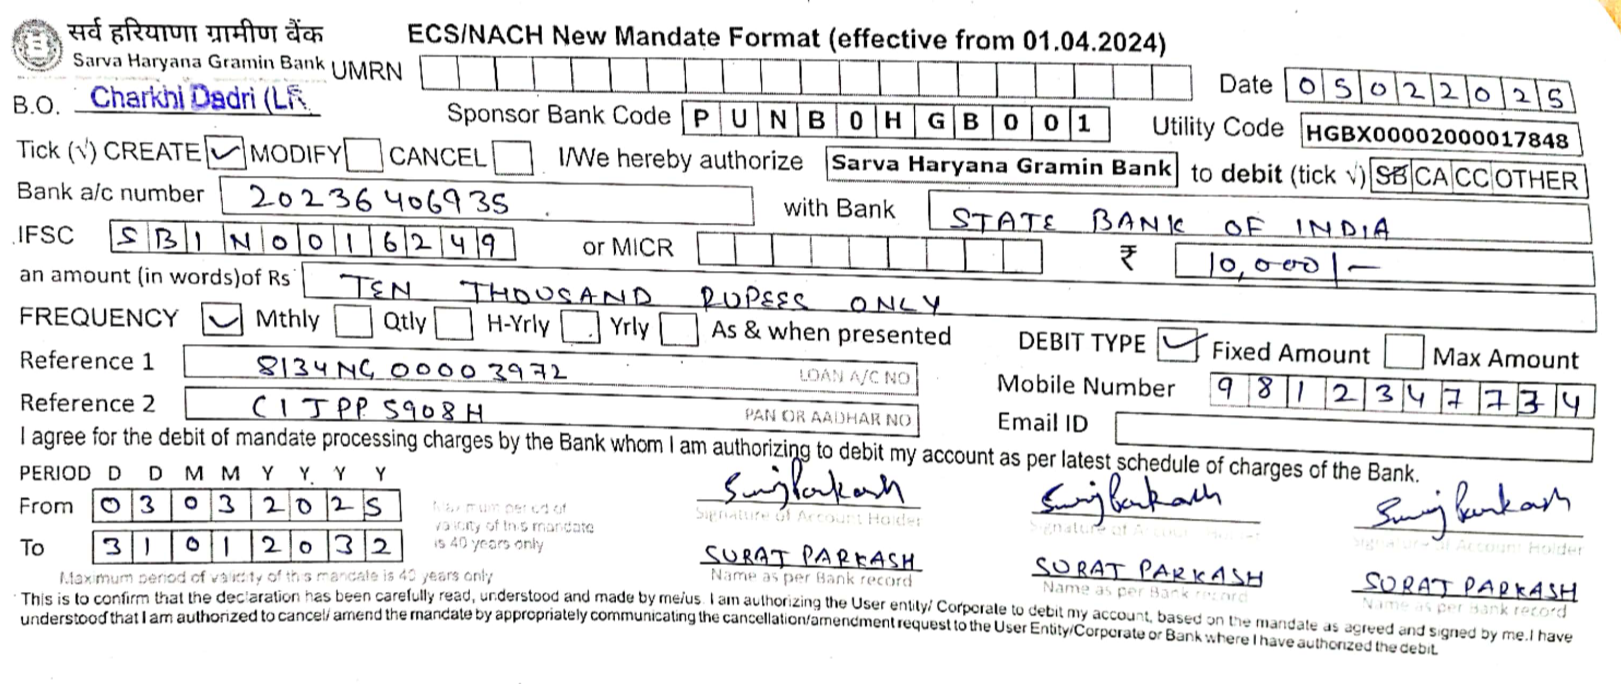 सर्व हरियाणा ग्रामीण बैंक
Sarva Haryana Gramin Bank
ECS/NACH New Mandate Format (effective from 01.04.2024)
UMRN
Date 05022025
B.O. Charkhi Dadri (LR
Sponsor Bank Code PUNB0HGB001
Utility Code HGBX00002000017848
Tick (√) CREATE ✓ MODIFY CANCEL I/We hereby authorize Sarva Haryana Gramin Bank to debit (tick √) SB CA CC OTHER
Bank a/c number 20236406935 with Bank STATE BANK OF INDIA
IFSC SBIN0016249 or MICR ₹ 10,000/-
an amount (in words)of Rs TEN THOUSAND RUPEES ONLY
FREQUENCY ✓ Mthly Qtly H-Yrly Yrly As & when presented DEBIT TYPE ✓ Fixed Amount Max Amount
Reference 1 8134NG00003972 LOAN A/C NO
Mobile Number 9812347734
Reference 2 CIJPP5908H PAN OR AADHAR NO
Email ID
I agree for the debit of mandate processing charges by the Bank whom I am authorizing to debit my account as per latest schedule of charges of the Bank.
PERIOD D D M M Y Y Y Y
From 03032025
To 31012032
Maximum period of
validity of this mandate
is 40 years only
Signature of Account Holder Signature of Account Holder Signature of Account Holder
SURAJ PARKASH SURAJ PARKASH SURAJ PARKASH
Name as per Bank record Name as per Bank record Name as per Bank record
Maximum period of validity of this mandate is 40 years only
This is to confirm that the declaration has been carefully read, understood and made by me/us. I am authorizing the User entity/ Corporate to debit my account, based on the mandate as agreed and signed by me.I have
understood that I am authorized to cancel/ amend the mandate by appropriately communicating the cancellation/amendment request to the User Entity/Corporate or Bank where I have authorized the debit.